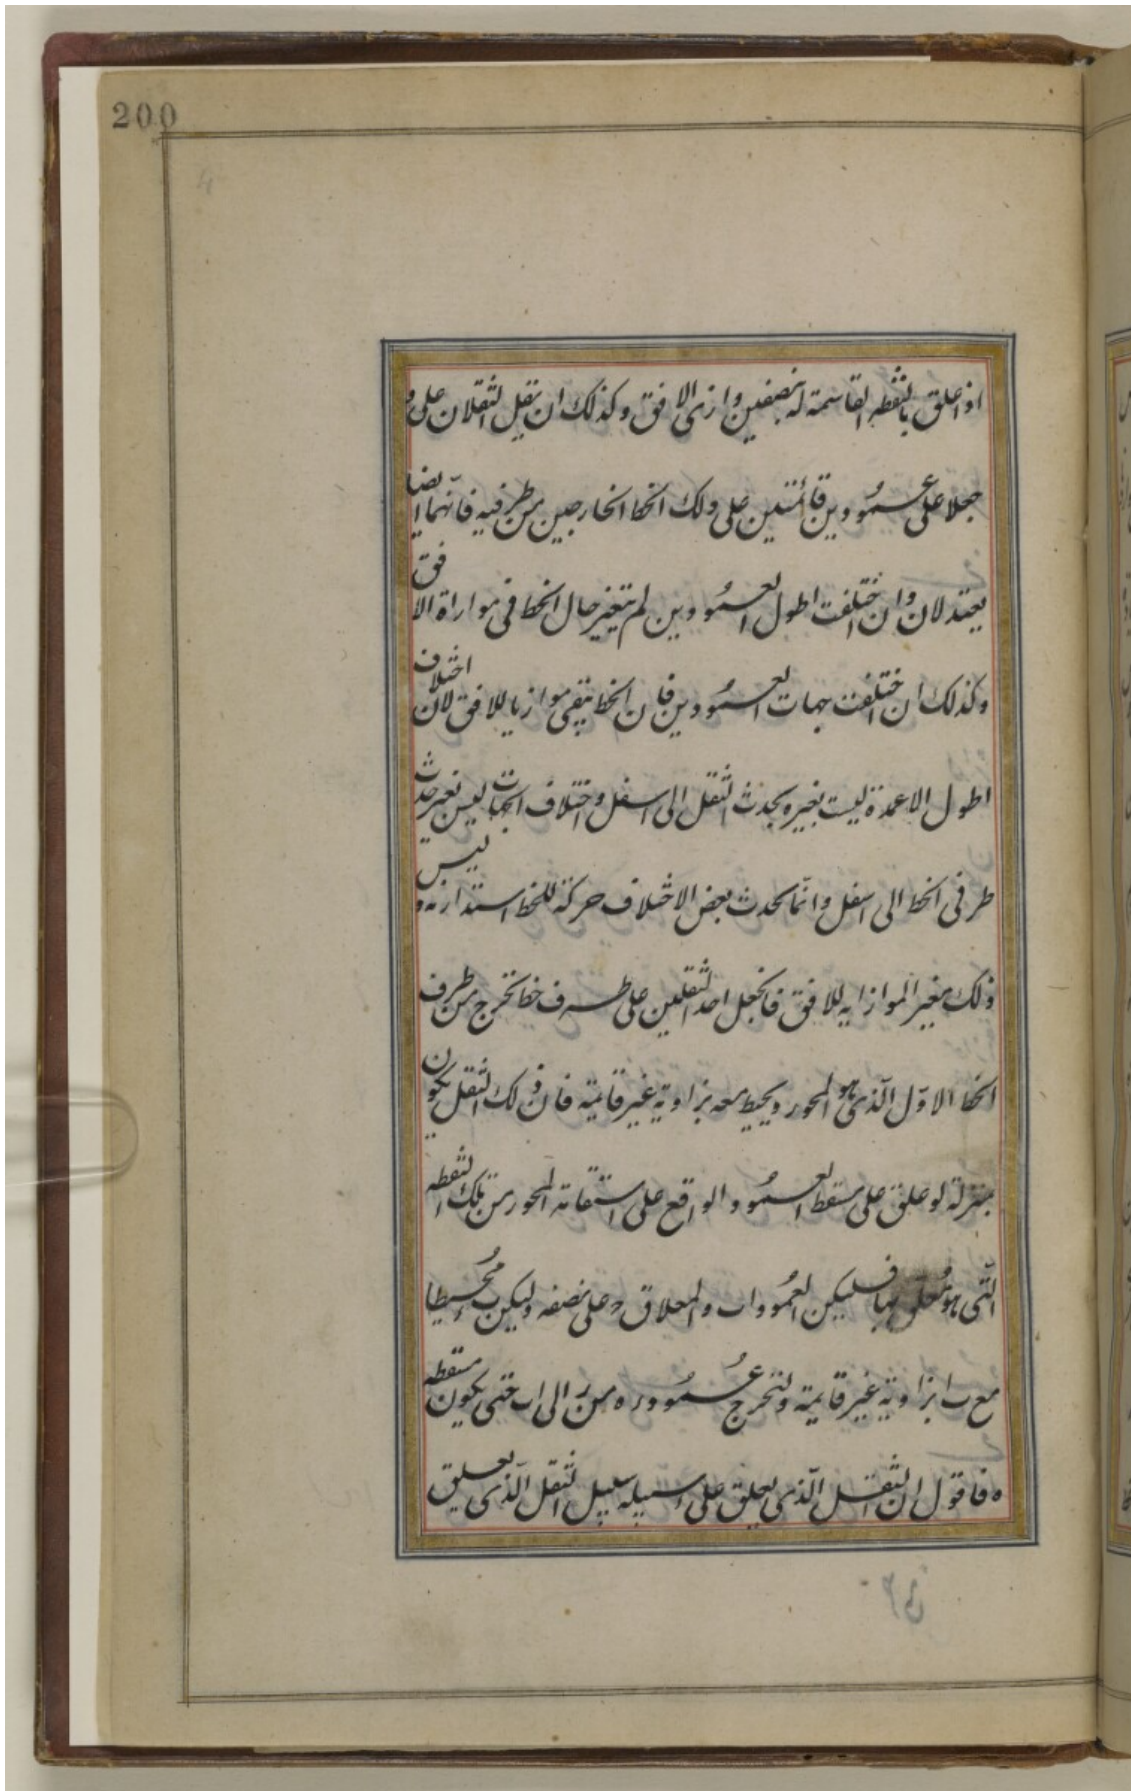 200
اذا علق بالنقطه القاسمة له بنصفين وازى الافق وكذلك ان نقل الثقلان على و
جعلا على عمودين قائمتين على ذلك الخط الخارجين من طرفيه فانهما ايضا
يعتدلان وان اختلفت اطول العمودين لم يتغير حال الخط فى موازاة الافق
وكذلك ان اختلفت جهات العمودين فان الخط يبقى موازيا للافق لان اختلاف
اطول الاعمدة ليست بغيره يحدث الثقل الى اسفل واختلاف الجهات ليس بغير حدث
طرفى الخط الى اسفل وانما يحدث بعض الاختلاف حركة للخط استداره وليس
ذلك بمغير الموازايه للافق فانجعل احد الثقلين على طرف خط تخرج من طرف
الخط الاول الذى هو المحور ويحيط معه بزاوية غير قايمة فان ذلك الثقل يكون
بمنزلة لو علق على مسقط العمود الواقع على استقامة المحور من تلك النقطه
التى هو معلق بها فليكن العمود اب والمعلاق ج على نصفه وليكن ب محيطا
مع ب ا بزاوية غير قايمة ولنخرج عمود ر ه من ر الى اب حتى يكون مسقطه
ه فاقول ان الثقل الذى يعلق على سبيله سبيل الثقل الذى يعلق